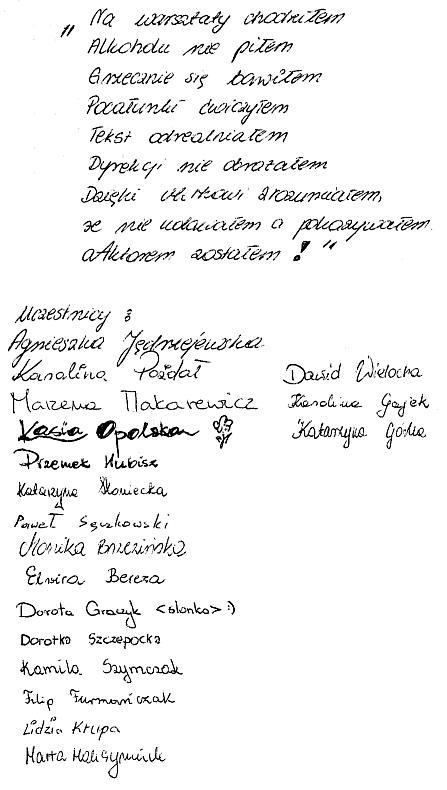 "Na warsztaty chodziłem
Alkoholu nie piłem
Grzecznie się bawiłem
Pocałunki ćwiczyłem
Tekst odrealniałem
Dyrekcji nie obrażałem
Dzięki zrozumiałem,
że nie udawałem a pokazywałem
aAktorem zostałem!"
Uczestnicy:
Agnieszka Jędrzejewska
Karolina Poździał
Marzena Makarewicz
Kasia Opolska
Przemek Hubisz
Katarzyna Słoniecka
Paweł Sęczkowski
Monika Brzezińska
Elwira Bereza
Dorota Graczyk <słonko> :)
Dorotka Szczepocka
Kamila Szymczak
Filip Furmańczak
Lidzia Krupa
Marta
Dawid Wielocha
Karolina Gajek
Katarzyna Górka